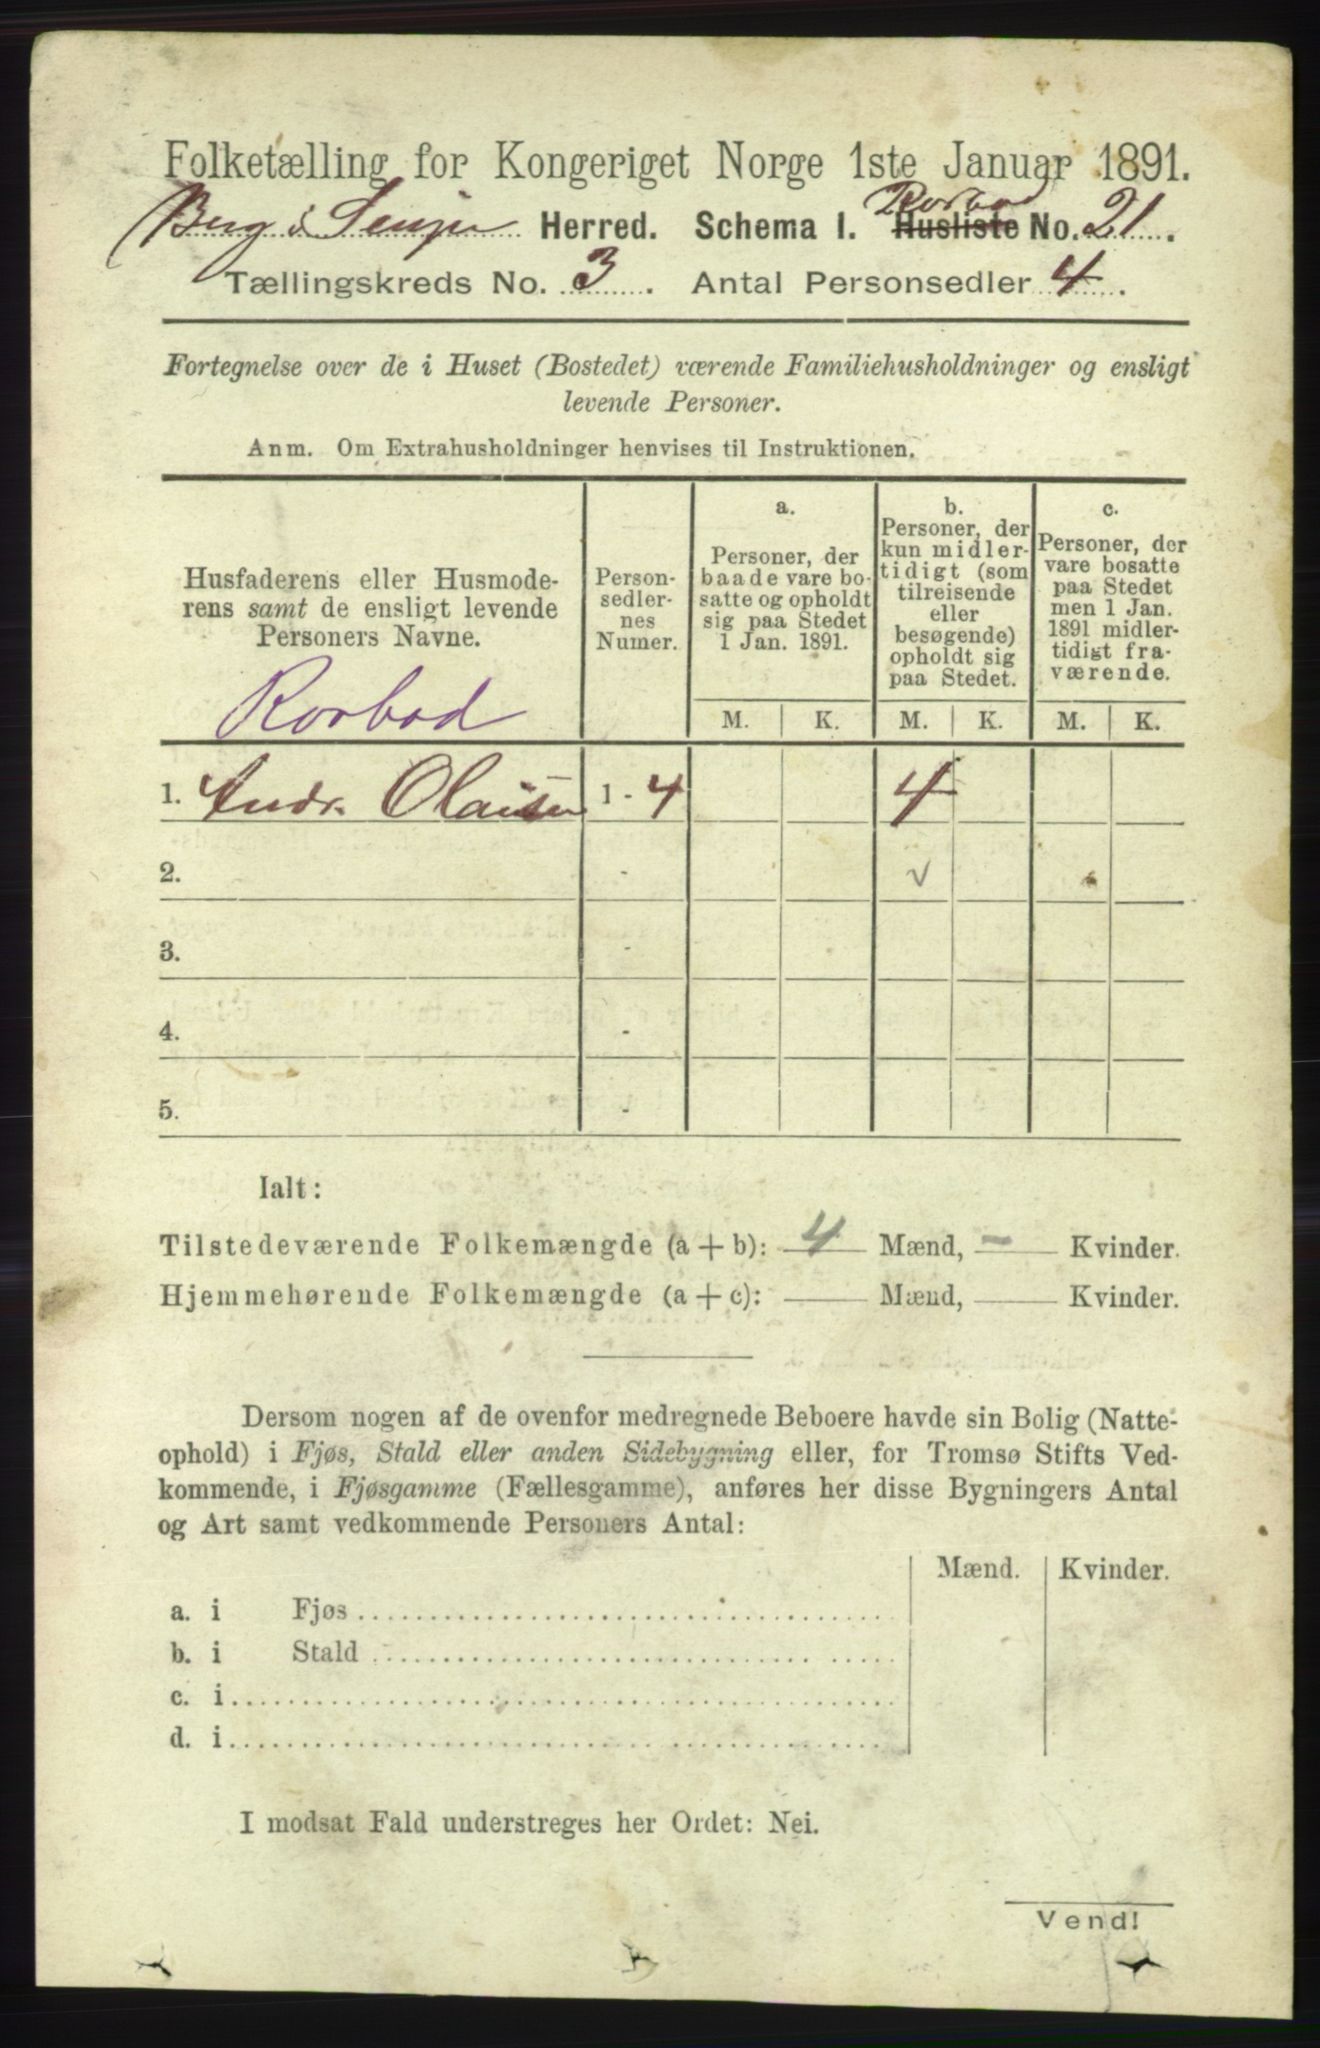 Folketælling for Kongeriget Norge 1ste Januar 1891.
Berg i Senjen Herred. Schema I. Husliste Rorbod No. 21.
Tællingskreds No. 3. Antal Personsedler 4.
Fortegnelse over de i Huset (Bostedet) værende Familiehusholdninger og ensligt
levende Personer.
Anm. Om Extrahusholdninger henvises til Instruktionen.
Husfaderens eller Husmode-
rens samt de ensligt levende
Personers Navne.
Rorbod
Person-
sedler-
nes
Numer.
a.
Personer, der
baade vare bo-
satte og opholdt
sig paa Stedet
1 Jan. 1891.
b.
Personer, der
kun midler-
tidigt (som
tilreisende
eller
besøgende)
opholdt sig
paa Stedet.
c.
Personer, der
vare bosatte
paa Stedet
men 1 Jan.
1891 midler-
tidigt fra-
værende.
M. K. M. K. M. K.
1. Andr. Olaisen 1 - 4 4
2. -
3. -
4. -
5. -
Ialt:
Tilstedeværende Folkemængde (a + b): 4 Mænd, - Kvinder.
Hjemmehørende Folkemængde (a + c): Mænd, Kvinder.
Dersom nogen af de ovenfor medregnede Beboere havde sin Bolig (Natte-
ophold) i Fjøs, Stald eller anden Sidebygning eller, for Tromsø Stifts Ved-
kommende, i Fjøsgamme (Fællesgamme), anføres her disse Bygningers Antal
og Art samt vedkommende Personers Antal:
Mænd. Kvinder.
a. i Fjøs
b. i Stald
c. i
d. i
I modsat Fald understreges her Ordet: Nei.
Vend!